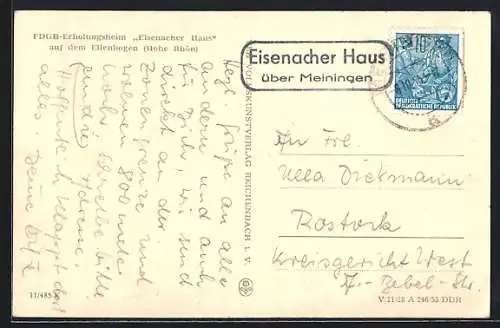 FDGB-Erholungsheim „Eisenacher Haus"
auf dem Ellenbogen (Hohe Rhön)
Eisenacher Haus
über Meiningen
10
DEUTSCHE
DEMOKRATISCHE REPUBLIK
Herzl. Grüße an alle
andern und auch
für Dich, wir sind
direkt an der
Zonengrenze und
wohnen 800 m
hoch.
bitte
Hoffentlich klappt dort
alles. Deine
VOLKSKUNSTVERLAG REICHENBACH I. V.
An Frl.
Ulla Dickmann
Rostock
Kreisgericht West
Bebel-Str.
11/485
V 11/28 A 246/55 DDR